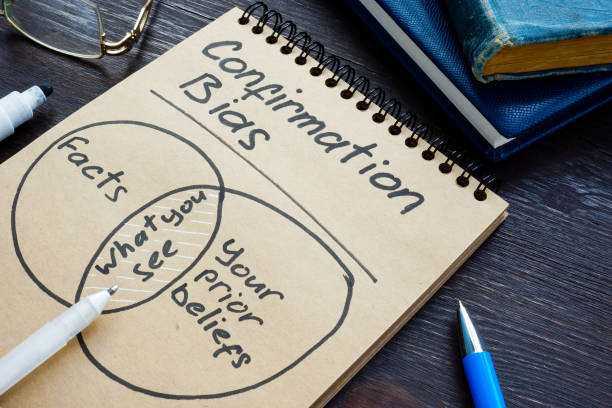 Confirmation
Bias
Facts
What you
see
Your
prior
beliefs